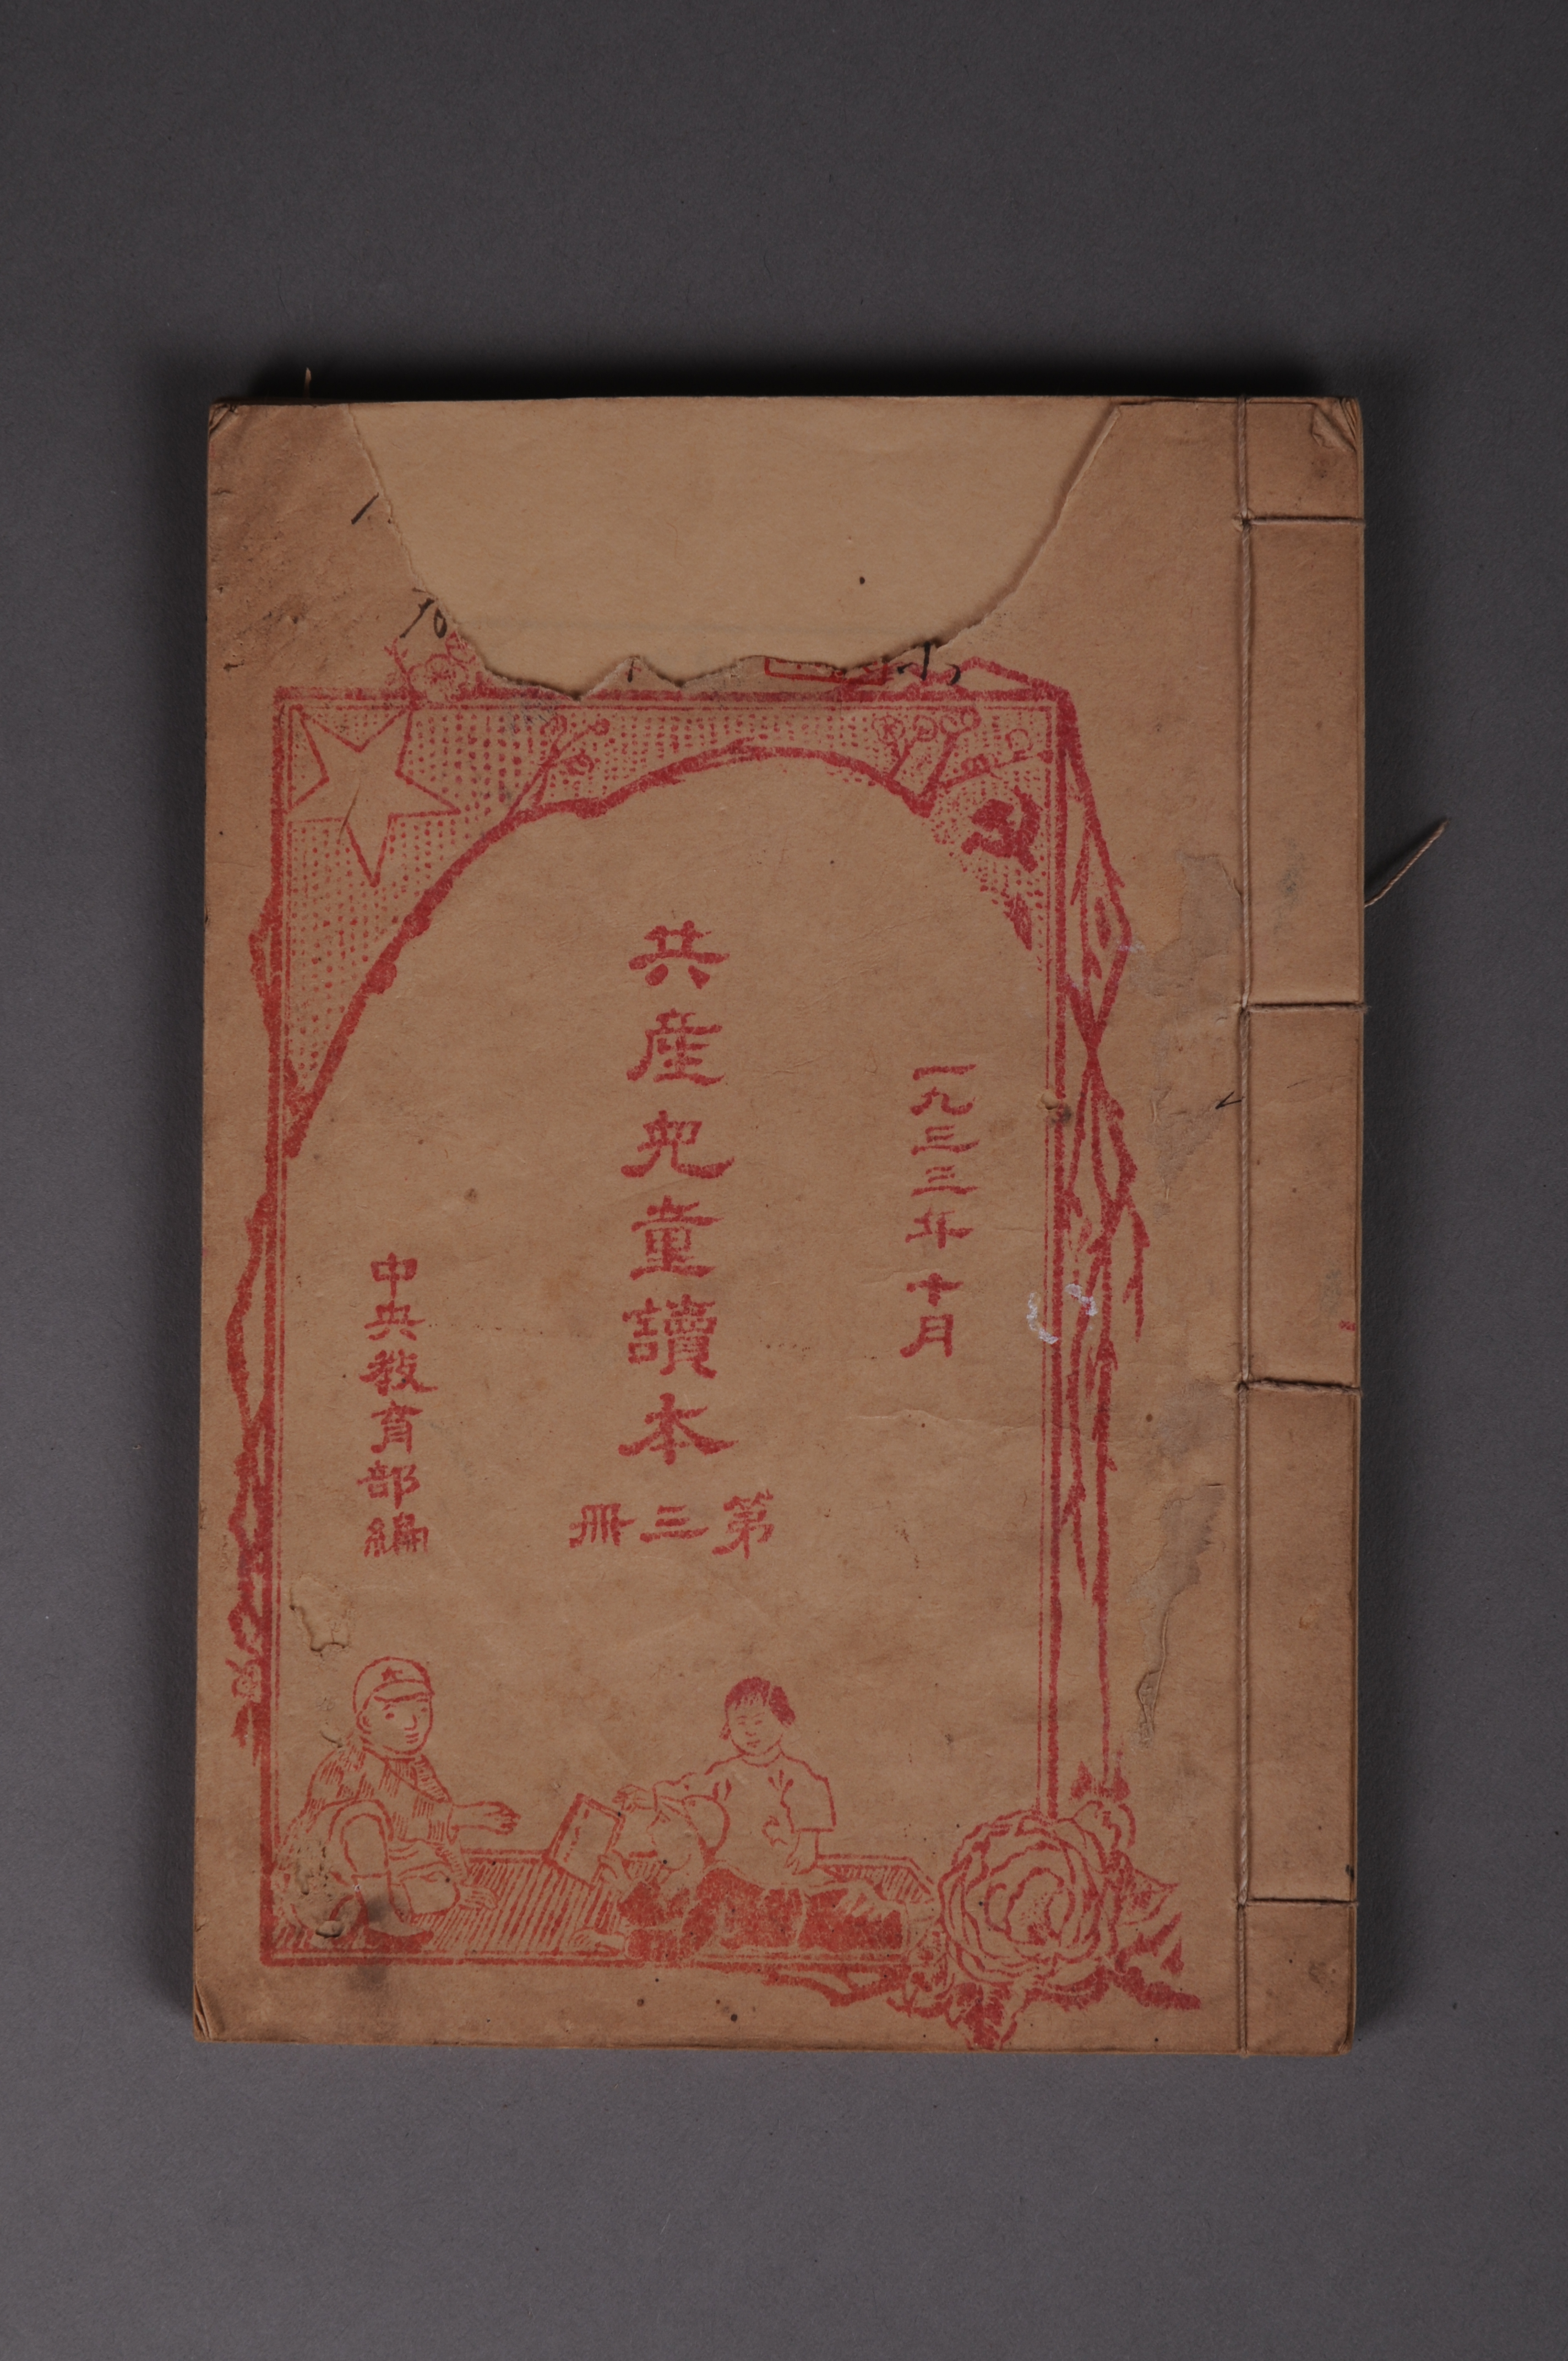 一九三三年十月
共産兒童讀本
第三冊
中央敎育部編